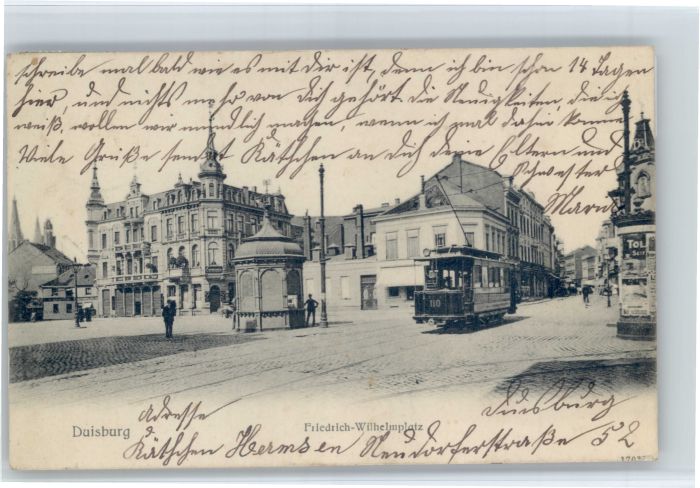 schreibe mal bald wie es mit Dir ist, denn ich bin schon 14 Tagen
hier, und nichts mehr von Dich gehört die Neuigkeiten, die ich
weiß, wollen wir mündlich machen, wenn ich mal dafür komme
Viele Grüße sendet Käthchen an Dich deine Eltern und
Schwester
110
Duisburg
Friedrich-Wilhelmplatz
Adresse
d
Käthchen Hermsen Neudorferstraße 52
Duisburg